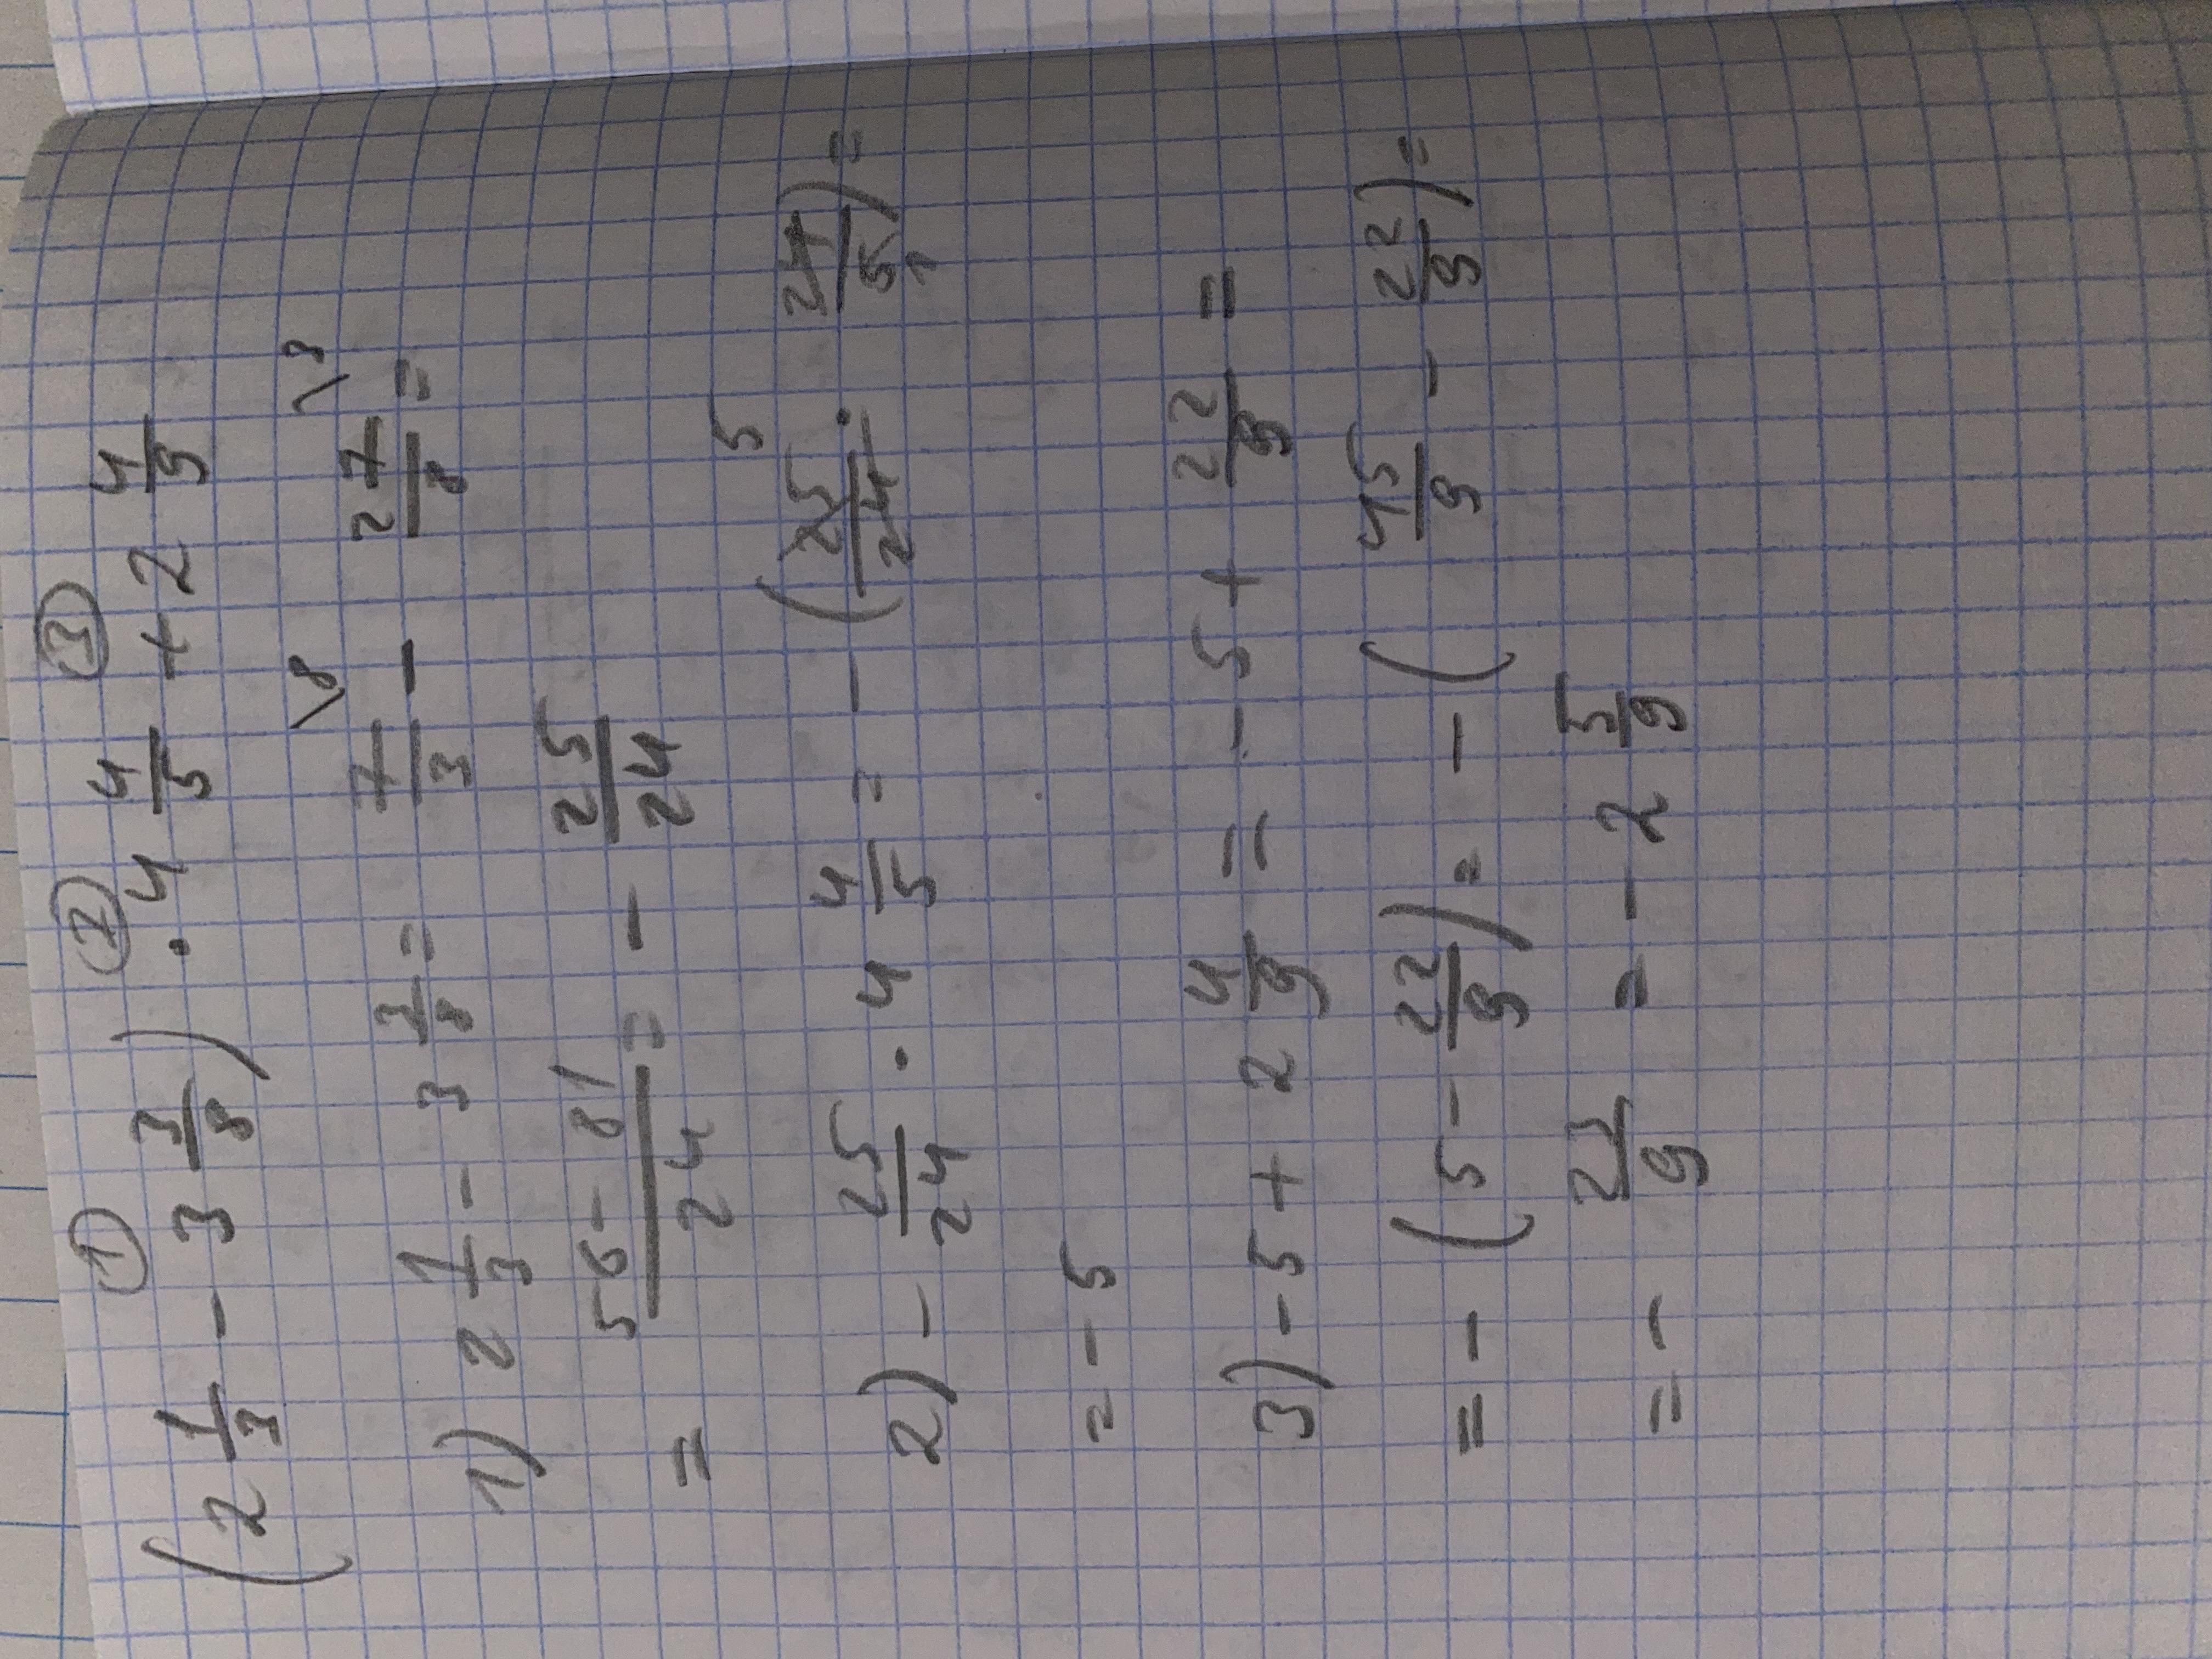 ① ② ③
(2 1/3 - 3 3/8) · 4 4/5 + 2 4/9
1) 2 1/3 - 3 3/8 = 7/3 \8 - 27/8 \3 =
= 56 - 81/24 = - 25/24
2) - 25/24 · 4 4/5 = - (25/24 5 · 24/5 1) =
= - 5
3) - 5 + 2 4/9 = - 5 + 22/9 =
= - (5 - 22/9) = - (45/9 - 22/9) =
= - 23/9 = - 2 5/9